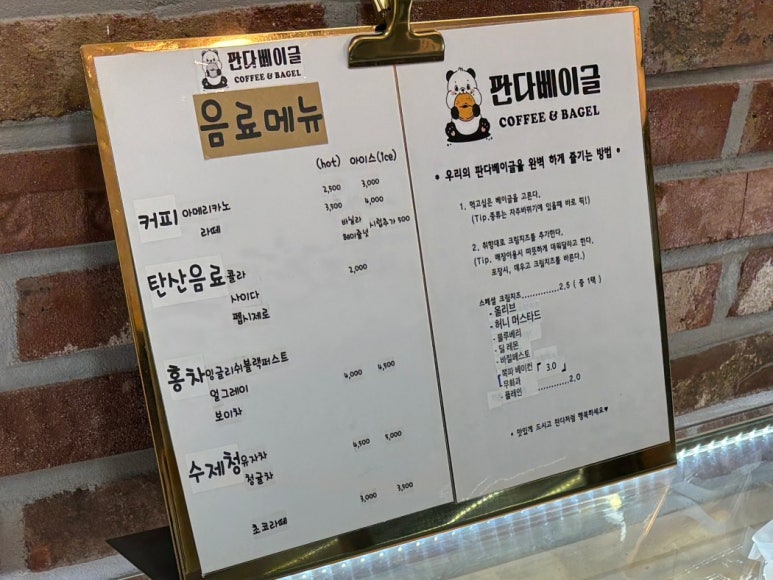 판다베이글
COFFEE & BAGEL
음료메뉴
(hot) 아이스(Ice)
커피 아메리카노 2,500 3,000
라떼 3,500 4,000
바닐라 시럽추가 500
헤이즐넛
탄산음료 콜라 2,000
사이다
펩시제로
홍차 잉글리쉬블랙퍼스트 4,000 4,500
얼그레이
보이차
수제청 유자차 4,500 5,000
청귤차
초코라떼 3,000 3,500
판다베이글
COFFEE & BAGEL
• 우리의 판다베이글을 완벽 하게 즐기는 방법 •
1. 먹고싶은 베이글을 고른다.
(Tip.종류는 자주바뀌기에 있을때 바로 픽!)
2. 취향대로 크림치즈를 추가한다.
(Tip. 매장이용시 따뜻하게 데워달라고 한다.
포장시, 데우고 크림치즈를 바른다.)
스페셜 크림치즈.............2.5 ( 중 1택 )
- 올리브
- 허니 머스타드
- 블루베리
- 딜 레몬
- 바질페스토
- 쪽파 베이컨 「 3.0 」
[ 무화과
- 플레인 ...........2.0
• 맛있게 드시고 판다처럼 행복하세요♥